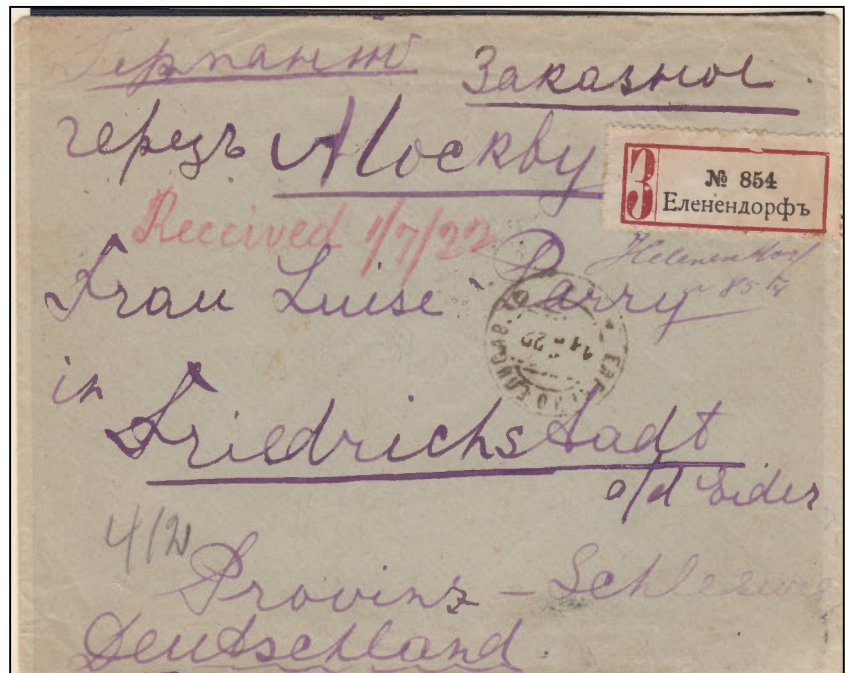 Германію Заказное
черезъ Москву
З № 854
Еленендорфъ
Received 1/7/22
Helenendorf
Frau Luise Parry
in
Friedrichstadt
a/d Eider
Provinz - Schleswig
Deutschland.